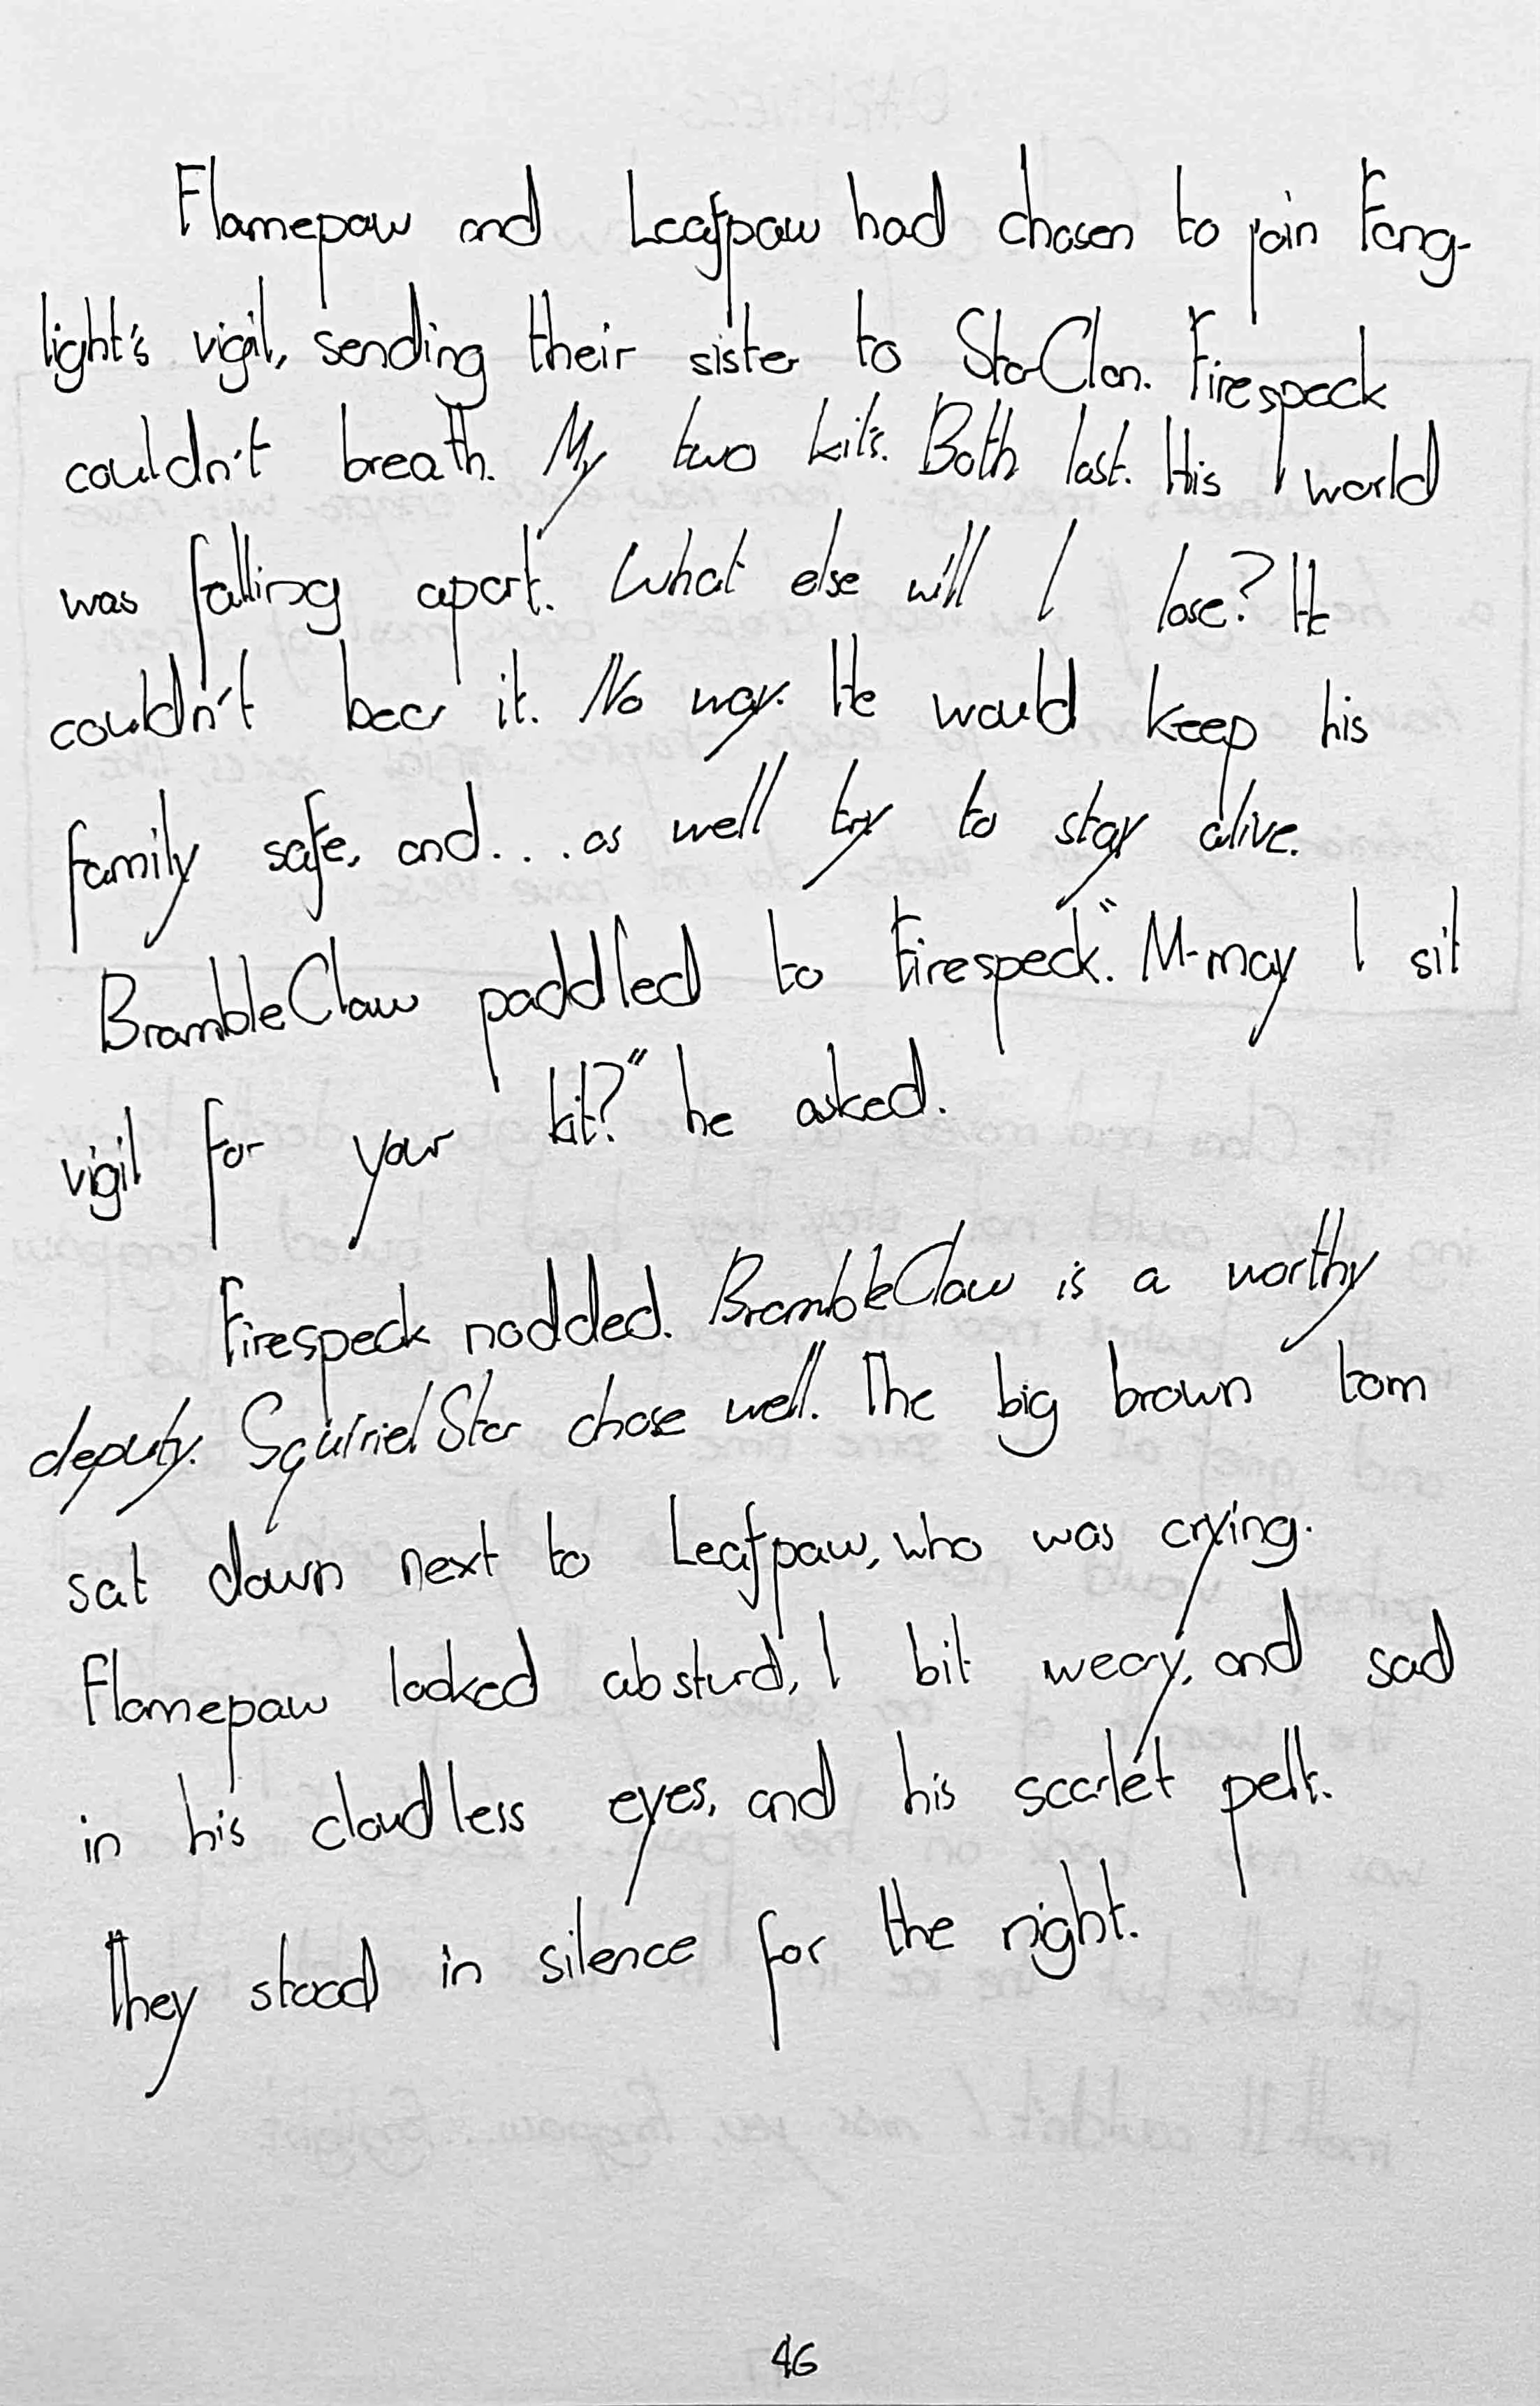 Flamepaw and Leafpaw had chosen to join Fang-
light's vigil, sending their sister to StarClan. Firespeck
couldn't breath. My two kits. Both lost. His world
was falling apart. What else will I lose? He
couldn't bear it. No way. He would keep his
family safe, and... as well try to stay alive.
BrambleClaw paddled to Firespeck. "M-may I sit
vigil for your kit?" he asked.
Firespeck nodded. BrambleClaw is a worthy
deputy. SquirrielStar chose well. The big brown tom
sat down next to Leafpaw, who was crying.
Flamepaw looked absturd, I bit weary, and sad
in his cloudless eyes, and his scarlet pelt.
They stood in silence for the night.
46